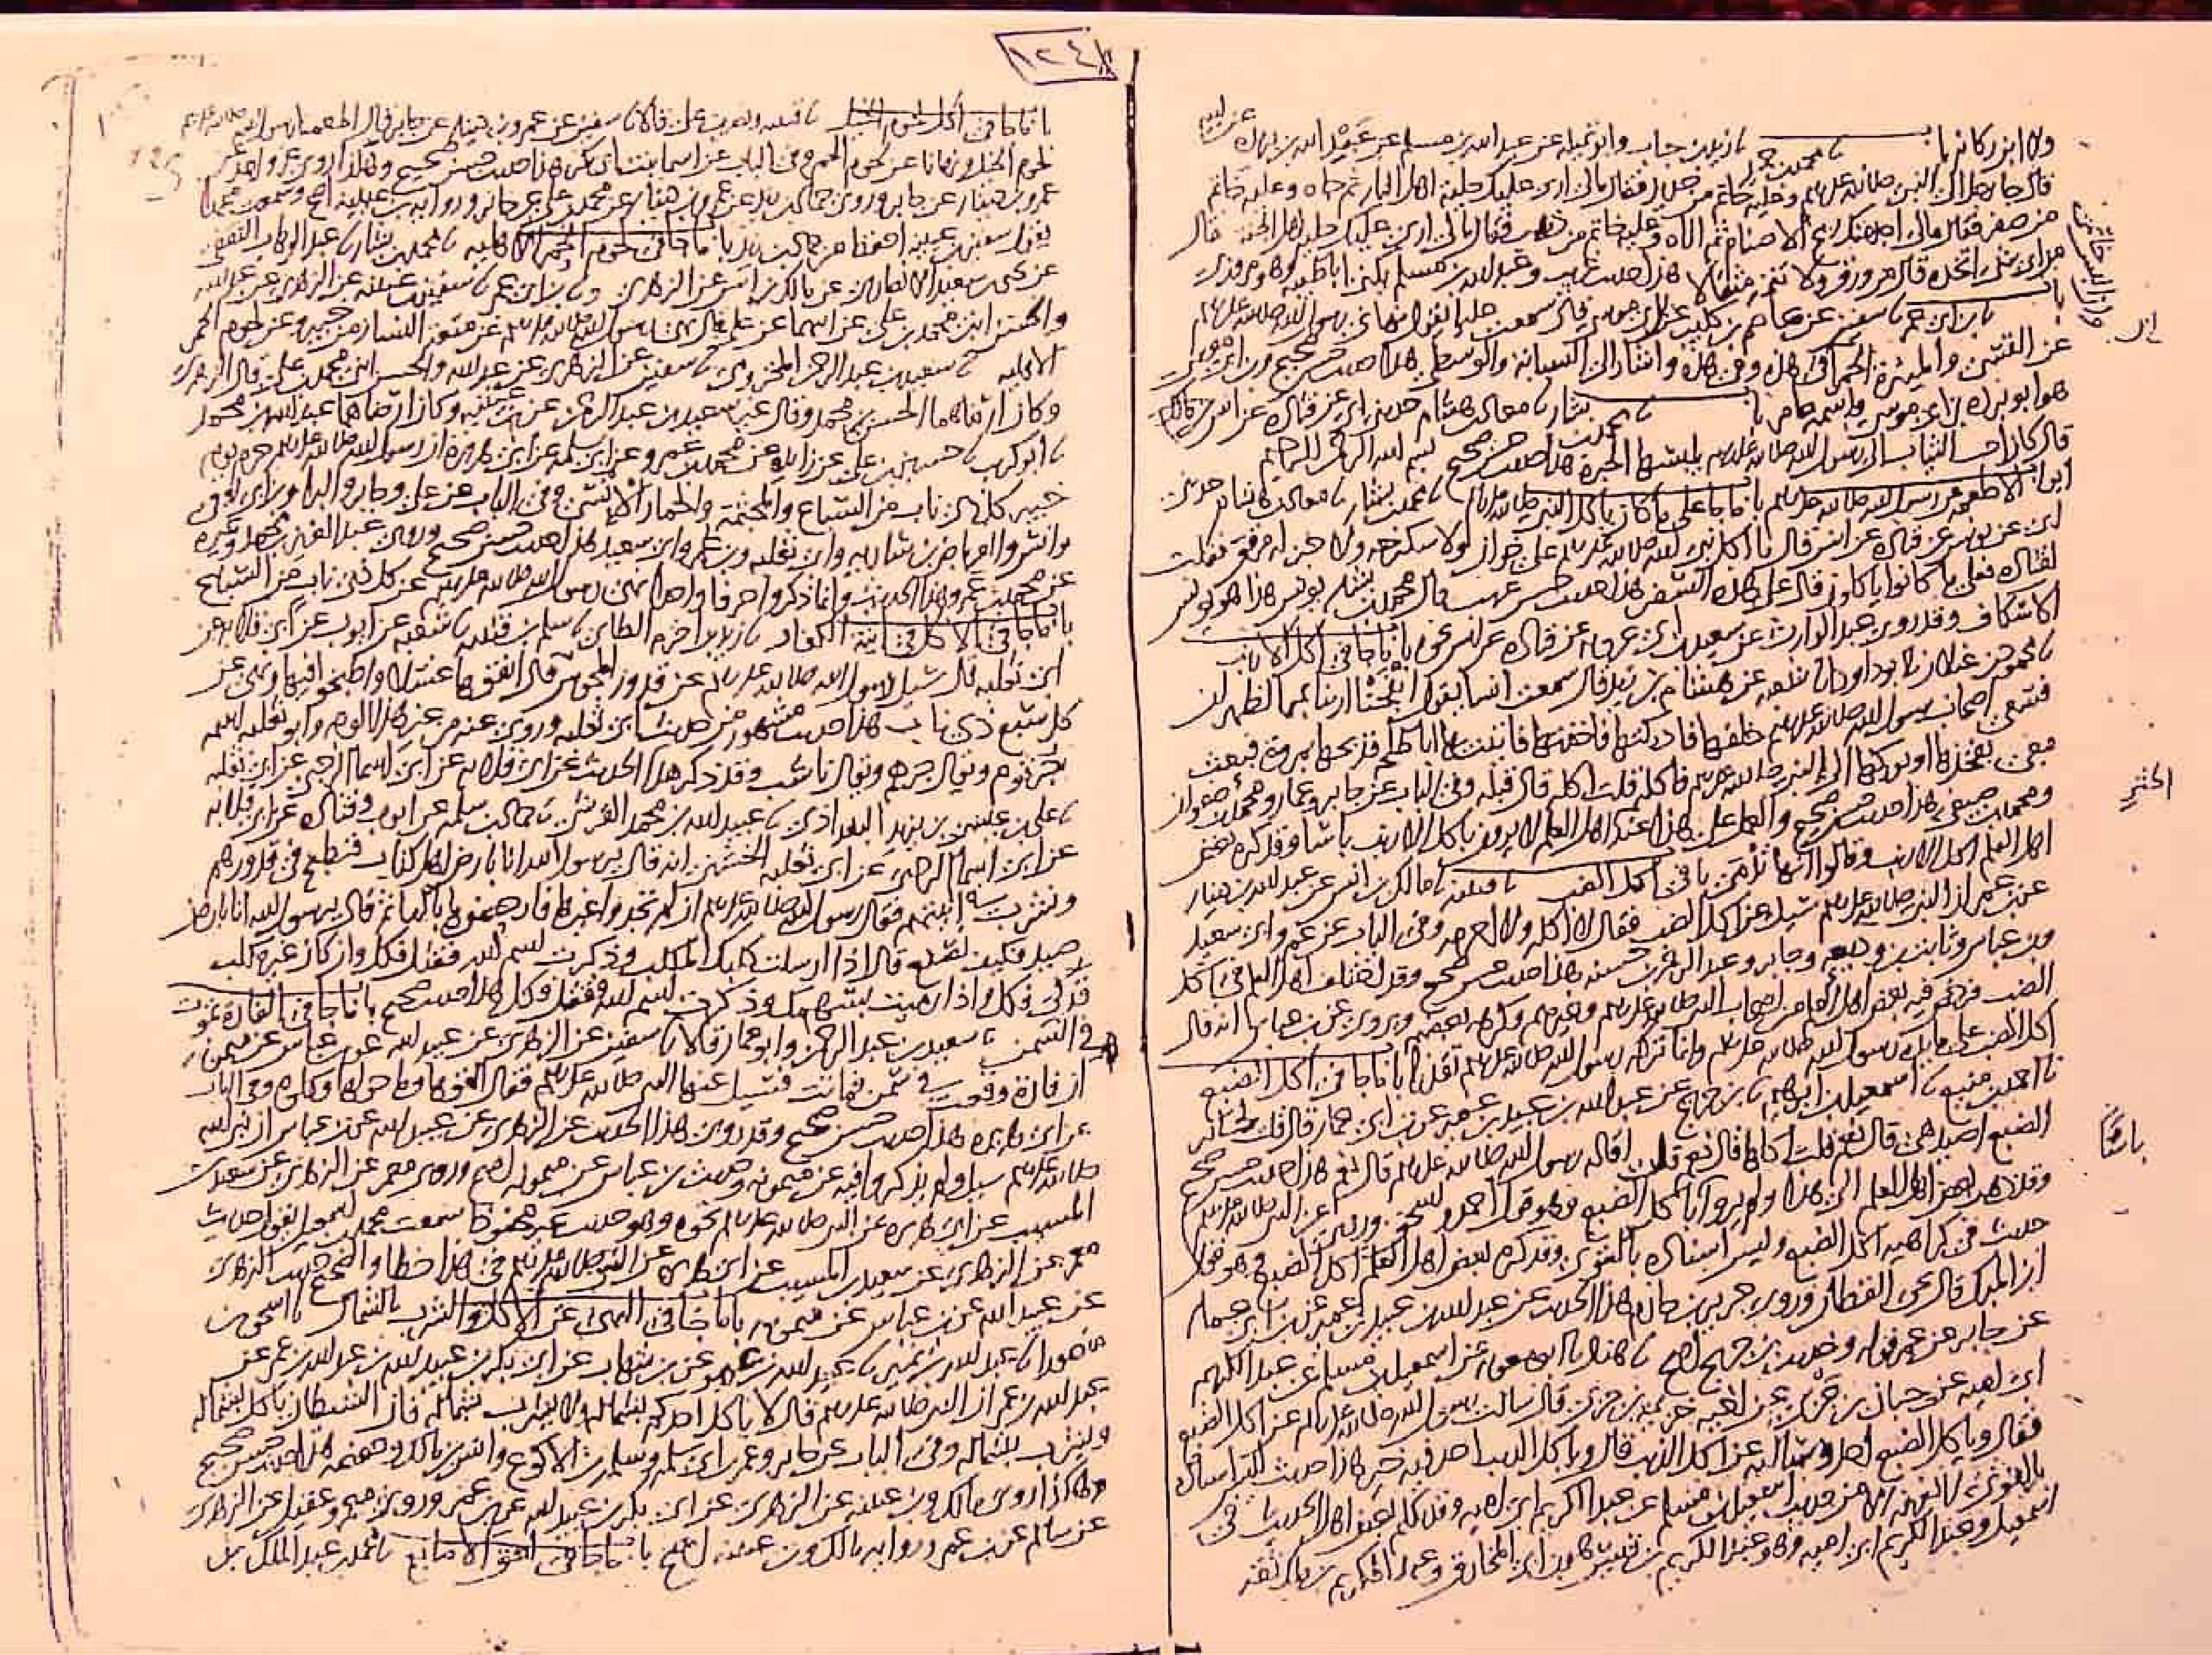 ١٢٤
ولا ابن ركانه باب نا محمد بن حميد نا زيد بن حباب وابو تميله عن عبد الله بن مسلم عن عبد الله بن بريده عن ابيه
قال جا رجل الى النبي صلى الله عليه وسلم وعليه خاتم من حديد فقال مالي ارى عليك حلية اهل النار ثم جاه وعليه خاتم
من صفر فقال مالي اجد منك ريح الاصنام ثم اتاه وعليه خاتم من ذهب فقال مالي ارى عليك حلية اهل الجنة قال
من اي شي اتخذه قال من ورق ولا تتمه مثقالا هذا حديث غريب وعبد الله بن مسلم يكنى ابا طيبه وهو مروزي
باب نا ابن ابي عمر نا سفين عن عاصم بن كليب عن ابن ابي موسى قال سمعت عليا يقول نهاني رسول الله صلى الله عليه وسلم
عن القسي والميثرة الحمرا وفي هذه وفي هذه واشار الى السبابة والوسطى هذا حديث حسن صحيح وابن ابي موسى
هو ابو برده بن ابي موسى واسمه عامر باب نا محمد بن بشار نا معاذ بن هشام حدثني ابي عن قتاده عن انس بن مالك
قال كان احب الثياب الى رسول الله صلى الله عليه وسلم يلبسها الحبرة هذا حديث حسن صحيح بسم الله الرحمن الرحيم
ابواب الاطعمة عن رسول الله صلى الله عليه وسلم باب ما جا على ما كان ياكل النبي صلى الله عليه وسلم نا محمد بن بشار نا معاذ بن هشام حدثني
ابي عن يونس عن قتاده عن انس قال ما اكل نبي الله صلى الله عليه وسلم على خوان ولا سكرجه ولا خبز له مرقق فقلت
لقتاده فعلى ما كانوا ياكلون قال على هذه السفر هذا حديث حسن غريب قال محمد بن بشار يونس هذا هو يونس
الاسكاف وقد روى عبد الوارث عن سعيد بن ابي عروبه عن قتاده عن انس نحوه باب ما جا في اكل الارنب
نا محمود بن غيلان نا ابو داود نا شعبه عن هشام بن زيد قال سمعت انسا يقول انفجنا ارنبا بمر الظهران
فسعى اصحاب رسول الله صلى الله عليه وسلم خلفها فادركتها فاخذتها فاتيت بها ابا طلحه فذبحها بمروة فبعث
معي بفخذها او بوركها الى النبي صلى الله عليه وسلم فاكله قلت اكله قال قبله وفي الباب عن جابر وعمار ومحمد بن صفوان
ومحمد بن صيفي هذا حديث حسن صحيح والعمل على هذا عند اهل العلم لا يرون باكل الارنب باسا وقد كره بعض
اهل العلم اكل الارنب وقالوا انها تدمى باب في اكل الضب نا قتيبه نا مالك بن انس عن عبد الله بن دينار
عن بن عمر ان النبي صلى الله عليه وسلم سيل عن اكل الضب فقال لا اكله ولا احرمه وفي الباب عن عمر وابي سعيد
وبن عباس وثابت بن وديعه وجابر وعبد الرحمن بن حسنه هذا حديث حسن صحيح وقد اختلف اهل العلم في اكل
الضب فرخص فيه بعض اهل العلم من اصحاب النبي صلى الله عليه وسلم وغيرهم وكرهه بعضهم ويروى عن بن عباس انه قال
اكل الضب على مايدة رسول الله صلى الله عليه وسلم وانما تركه رسول الله صلى الله عليه وسلم تقذرا باب ما جا في اكل الضبع
نا احمد بن منيع نا اسمعيل بن ابرهيم نا بن جريج عن عبد الله بن عبيد بن عمير عن بن ابي عمار قال قلت لجابر
الضبع اصيد هي قال نعم قلت اكلها قال نعم قلت اقاله رسول الله صلى الله عليه وسلم قال نعم هذا حديث حسن صحيح
وقد ذهب بعض اهل العلم الى هذا ولم يروا باكل الضبع وهو قول احمد واسحق وروي عن النبي صلى الله عليه وسلم
حديث في كراهية اكل الضبع وليس اسناده بالقوي وقد كره بعض اهل العلم اكل الضبع وهو قول
ابن المبرك قال يحيى القطان وروى جرير بن حازم هذا الحديث عن عبد الله بن عبيد بن عمير عن بن ابي عمار
عن جابر عن عمر قوله وحديث بن جريج اصح نا هناد نا ابو معويه عن اسمعيل بن مسلم عن عبد الكريم
ابن ابي اميه عن حبان بن جزي عن اخيه خزيمه بن جزي قال سالت رسول الله صلى الله عليه وسلم عن اكل الضبع
فقال وياكل الضبع احد وسالته عن اكل الذيب قال وياكل الذيب احد فيه خير هذا حديث ليس اسناده
بالقوي لا نعرفه الا من حديث اسمعيل بن مسلم عن عبد الكريم ابي اميه وقد تكلم بعض اهل الحديث في
اسمعيل وعبد الكريم ابي اميه وهو عبد الكريم بن قيس هو بن ابي المخارق وعبد الكريم بن مالك ثقه
باب ما جا في اكل لحوم الخيل نا قتيبه ونصر بن علي قالا نا سفين عن عمرو بن دينار عن جابر قال اطعمنا رسول الله صلى الله عليه وسلم
لحوم الخيل ونهانا عن لحوم الحمر وفي الباب عن اسما بنت ابي بكر هذا حديث حسن صحيح وهكذا روى غير واحد عن
عمرو بن دينار عن جابر وروى حماد بن زيد عن عمرو بن دينار عن محمد بن علي عن جابر ورواية بن عيينه اصح وسمعت محمدا
يقول سفين بن عيينه احفظ من حماد بن زيد باب ما جا في لحوم الحمر الاهليه نا محمد بن بشار نا عبد الوهاب الثقفي
عن يحيى بن سعيد الانصاري عن مالك بن انس عن الزهري ونا بن ابي عمر نا سفين بن عيينه عن الزهري عن عبد الله
والحسن ابني محمد بن علي عن ابيهما عن علي قال نهى رسول الله صلى الله عليه وسلم عن متعة النسا زمن خيبر وعن لحوم الحمر
الاهليه نا سعيد بن عبد الرحمن المخزومي نا سفين عن الزهري عن عبد الله والحسن ابني محمد بن علي قال الزهري
وكان ارضاهما الحسن بن محمد وقال غير سعيد بن عبد الرحمن عن بن عيينه وكان ارضاهما عبد الله بن محمد
نا ابو كريب نا حسين بن علي عن زايده عن محمد بن عمرو عن ابي سلمه عن ابي هريرة ان رسول الله صلى الله عليه وسلم حرم يوم
خيبر كل ذي ناب من السباع والمجثمة والحمار الانسي وفي الباب عن علي وجابر والبرا وبن ابي اوفى
وانس والعرباض بن ساريه وابي ثعلبه وبن عمر وابي سعيد هذا حديث حسن صحيح وروى عبد العزيز بن محمد وغيره
عن محمد بن عمرو هذا الحديث وانما ذكروا حرفا واحدا نهى رسول الله صلى الله عليه وسلم عن كل ذي ناب من السباع
باب ما جا في الاكل في انية الكفار نا زيد بن اخزم الطاي نا سلم بن قتيبه نا شعبه عن ايوب عن ابي قلابه عن
ابي ثعلبه قال سيل رسول الله صلى الله عليه وسلم عن قدور المجوس قال انقوها غسلا واطبخوا فيها ونهى عن
كل سبع ذي ناب هذا حديث مشهور من حديث ابي ثعلبه وروي عنه من غير هذا الوجه وابو ثعلبه اسمه
جرثوم ويقال جرهم ويقال ناشب وقد ذكر هذا الحديث عن ابي قلابه عن ابي اسما الرحبي عن ابي ثعلبه
نا علي بن عيسى بن يزيد البغداذي نا عبيد الله بن محمد القرشي نا حماد بن سلمه عن ايوب وقتاده عن ابي قلابه
عن ابي اسما الرحبي عن ابي ثعلبه الخشني انه قال يرسول الله انا بارض اهل كتاب فنطبخ في قدورهم
ونشرب في انيتهم فقال رسول الله صلى الله عليه وسلم ان لم تجدوا غيرها فارحضوها بالما ثم قال يرسول الله انا بارض
صيد فكيف نصنع قال اذا ارسلت كلبك المكلب وذكرت اسم الله فقتل فكل وان كان غير مكلب
فذكي فكل واذا رميت بسهمك وذكرت اسم الله فقتل فكل هذا حديث صحيح باب ما جا في الفارة تموت
في السمن نا سعيد بن عبد الرحمن وابو عمار قالا نا سفين عن الزهري عن عبيد الله عن بن عباس عن ميمونه
ان فارة وقعت في سمن فماتت فسيل عنها النبي صلى الله عليه وسلم فقال القوها وما حولها وكلوه وفي الباب
عن ابي هريره هذا حديث حسن صحيح وقد روي هذا الحديث عن الزهري عن عبيد الله عن بن عباس ان نبي الله
صلى الله عليه وسلم سيل ولم يذكروا فيه عن ميمونه وحديث بن عباس عن ميمونه اصح وروى معمر عن الزهري عن سعيد بن
المسيب عن ابي هريره عن النبي صلى الله عليه وسلم نحوه وهو حديث غير محفوظ سمعت محمد بن اسمعيل يقول حديث
معمر عن الزهري عن سعيد بن المسيب عن ابي هريره عن النبي صلى الله عليه وسلم في هذا خطا والصحيح حديث الزهري
عن عبيد الله عن بن عباس عن ميمونه باب ما جا في النهي عن الاكل والشرب بالشمال نا اسحق بن
منصور نا عبد الله بن نمير نا عبيد الله بن عمر عن بن شهاب عن ابي بكر بن عبيد الله بن عبد الله بن عمر عن
عبد الله بن عمر ان النبي صلى الله عليه وسلم قال لا ياكل احدكم بشماله ولا يشرب بشماله فان الشيطان ياكل بشماله
ويشرب بشماله وفي الباب عن جابر وعمر بن ابي سلمه وسلمه بن الاكوع وانس بن مالك وحفصه هذا حديث حسن صحيح
وهكذا روى مالك وبن عيينه عن الزهري عن ابي بكر بن عبيد الله عن بن عمر وروى معمر وعقيل عن الزهري
عن سالم عن بن عمر ورواية مالك وبن عيينه اصح باب ما جا في لعق الاصابع نا محمد بن عبد الملك بن